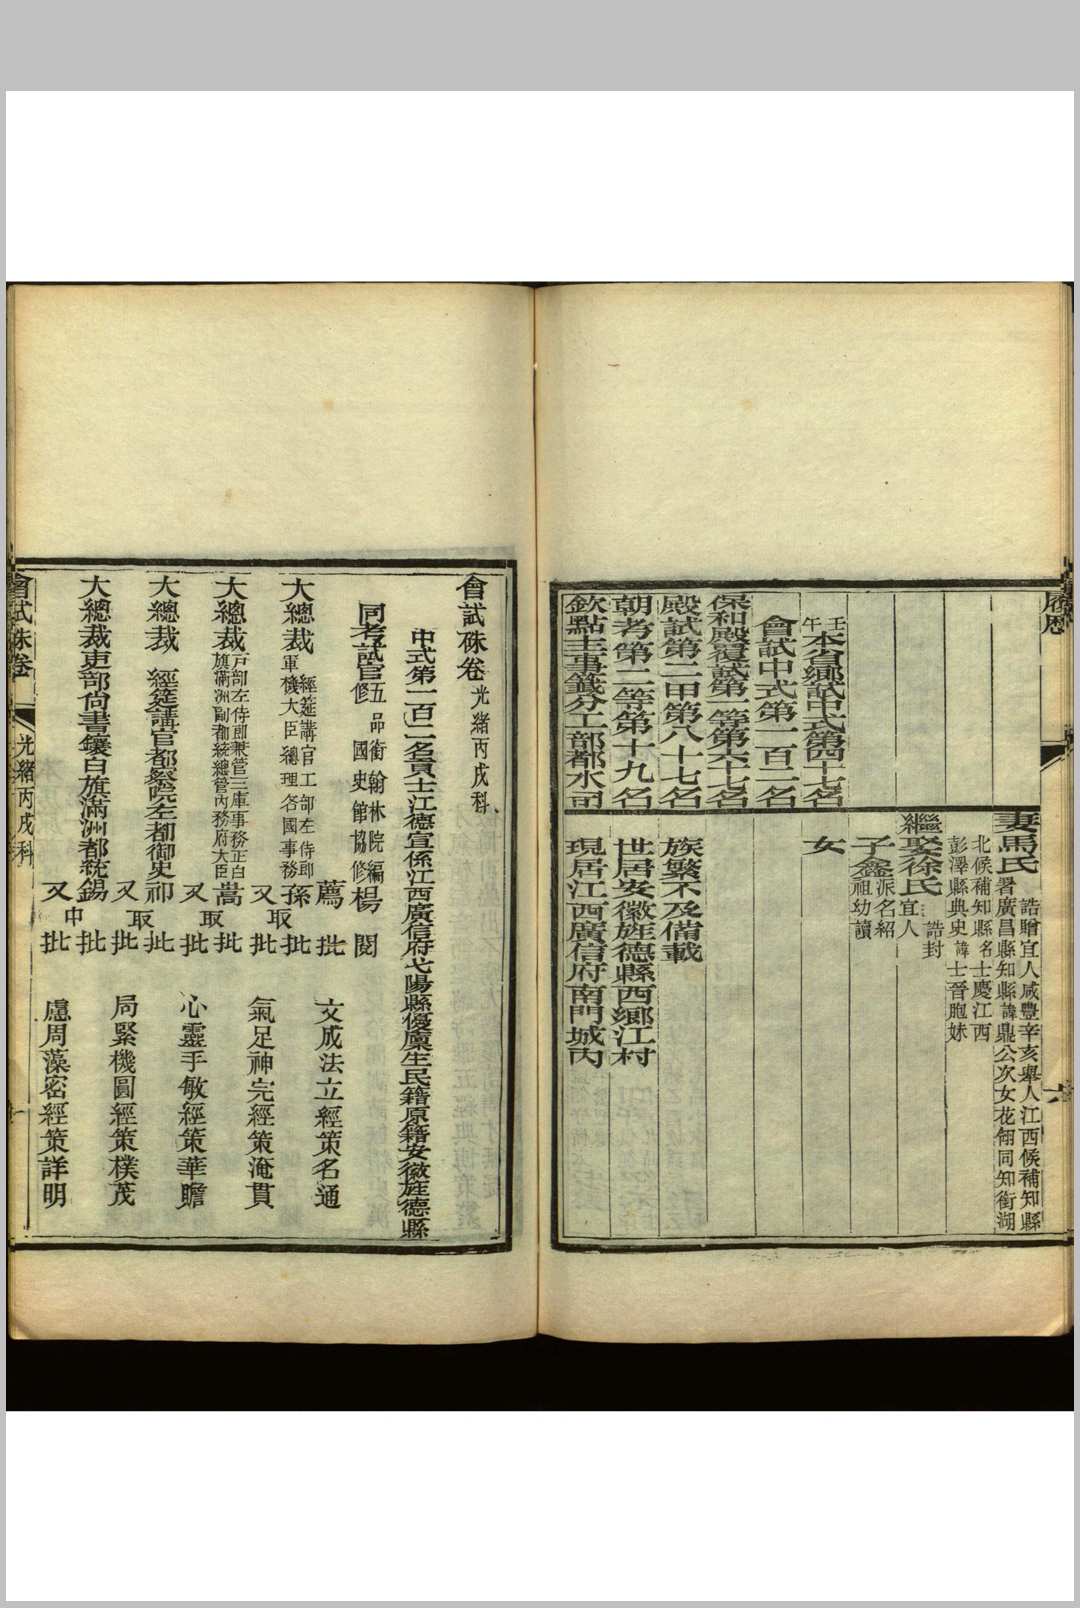 履歷
妻馬氏
誥贈宜人咸豐辛亥舉人江西候補知縣
署廣昌縣知縣諱鼎公次女花翎同知銜湖
北候補知縣名士慶江西
彭澤縣典史諱士晉胞妹
繼娶徐氏
誥封
宜人
子鑫
派名紹
祖幼讀
女
壬午
本省鄉試中式第四十七名
會試中式第一百二名
保和殿覆試第一等第六十七名
殿試第二甲第八十七名
朝考第二等第十九名
欽點主事籤分工部都水司
族繁不及備載
世居安徽旌德縣西鄉江村
現居江西廣信府南門城內
會試硃卷 光緒丙戌科
中式第一百二名貢士江德宣係江西廣信府弋陽縣優廩生民籍原籍安徽旌德縣
同考試官
五品銜翰林院編
修國史館協修
楊 閱
薦批 文成法立經策名通
大總裁
經筵講官工部左侍郎
軍機大臣總理各國事務
孫批
取
又批 氣足神完經策淹貫
大總裁
戶部左侍郎兼管三庫事務正白
旗滿洲副都統總管內務府大臣
嵩批
取
又批 心靈手敏經策華贍
大總裁 經筵講官都察院左都御史祁批
取
又批 局緊機圓經策樸茂
大總裁吏部尚書鑲白旗滿洲都統錫批
中
又批 慮周藻密經策詳明
會試硃卷
光緒丙戌科
一